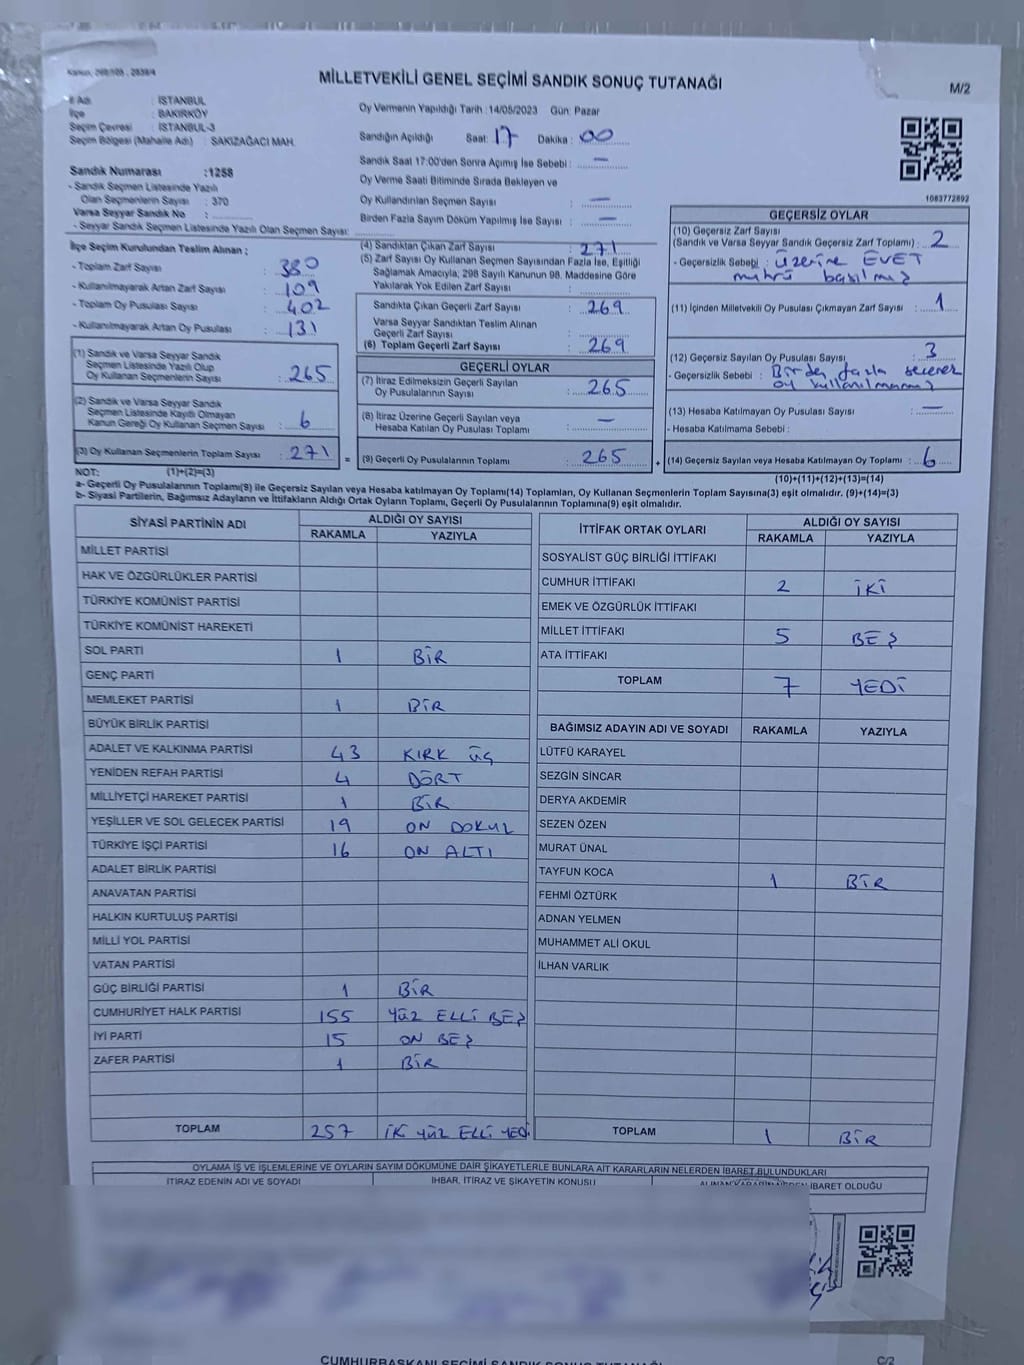 Kanun, 298/105 , 2839/4
MİLLETVEKİLİ GENEL SEÇİMİ SANDIK SONUÇ TUTANAĞI
M/2
İl Adı : İSTANBUL
İlçe : BAKIRKÖY
Seçim Çevresi : İSTANBUL-3
Seçim Bölgesi (Mahalle Adı) : SAKIZAĞACI MAH.
Sandık Numarası :1258
- Sandık Seçmen Listesinde Yazılı
Olan Seçmenlerin Sayısı : 370
Varsa Seyyar Sandık No :
- Seyyar Sandık Seçmen Listesinde Yazılı Olan Seçmen Sayısı:
Oy Vermenin Yapıldığı Tarih :14/05/2023 Gün: Pazar
Sandığın Açıldığı Saat: 17 Dakika : 00
Sandık Saat 17:00'den Sonra Açılmış İse Sebebi : —
Oy Verme Saati Bitiminde Sırada Bekleyen ve
Oy Kullandırılan Seçmen Sayısı : —
Birden Fazla Sayım Döküm Yapılmış İse Sayısı : —
1083772892
İlçe Seçim Kurulundan Teslim Alınan ;
- Toplam Zarf Sayısı : 380
- Kullanılmayarak Artan Zarf Sayısı : 109
- Toplam Oy Pusulası Sayısı : 402
- Kullanılmayarak Artan Oy Pusulası : 131
(1) Sandık ve Varsa Seyyar Sandık
Seçmen Listesinde Yazılı Olup
Oy Kullanan Seçmenlerin Sayısı : 265
(2) Sandık ve Varsa Seyyar Sandık
Seçmen Listesinde Kayıtlı Olmayan
Kanun Gereği Oy Kullanan Seçmen Sayısı : 6
(3) Oy Kullanan Seçmenlerin Toplam Sayısı : 271
(4) Sandıktan Çıkan Zarf Sayısı : 271
(5) Zarf Sayısı Oy Kullanan Seçmen Sayısından Fazla İse, Eşitliği
Sağlamak Amacıyla; 298 Sayılı Kanunun 98. Maddesine Göre
Yakılarak Yok Edilen Zarf Sayısı :
Sandıkta Çıkan Geçerli Zarf Sayısı : 269
Varsa Seyyar Sandıktan Teslim Alınan
Geçerli Zarf Sayısı :
(6) Toplam Geçerli Zarf Sayısı : 269
GEÇERLİ OYLAR
(7) İtiraz Edilmeksizin Geçerli Sayılan
Oy Pusulalarının Sayısı : 265
(8) İtiraz Üzerine Geçerli Sayılan veya
Hesaba Katılan Oy Pusulası Toplamı : —
= (9) Geçerli Oy Pusulalarının Toplamı : 265
GEÇERSİZ OYLAR
(10) Geçersiz Zarf Sayısı
(Sandık ve Varsa Seyyar Sandık Geçersiz Zarf Toplamı) : 2
- Geçersizlik Sebebi : ÜZERİNE EVET
mührü basılmış
(11) İçinden Milletvekili Oy Pusulası Çıkmayan Zarf Sayısı : 1
(12) Geçersiz Sayılan Oy Pusulası Sayısı : 3
- Geçersizlik Sebebi : Birden fazla seçenek
oy kullanılmamış
(13) Hesaba Katılmayan Oy Pusulası Sayısı : —
- Hesaba Katılmama Sebebi :
+ (14) Geçersiz Sayılan veya Hesaba Katılmayan Oy Toplamı : 6
NOT: (1)+(2)=(3)
(10)+(11)+(12)+(13)=(14)
a- Geçerli Oy Pusulalarının Toplamı(9) ile Geçersiz Sayılan veya Hesaba katılmayan Oy Toplamı(14) Toplamları, Oy Kullanan Seçmenlerin Toplam Sayısına(3) eşit olmalıdır. (9)+(14)=(3)
b- Siyasi Partilerin, Bağımsız Adayların ve İttifakların Aldığı Ortak Oyların Toplamı, Geçerli Oy Pusulalarının Toplamına(9) eşit olmalıdır.
SİYASİ PARTİNİN ADI ALDIĞI OY SAYISI
RAKAMLA YAZIYLA
MİLLET PARTİSİ
HAK VE ÖZGÜRLÜKLER PARTİSİ
TÜRKİYE KOMÜNİST PARTİSİ
TÜRKİYE KOMÜNİST HAREKETİ
SOL PARTİ 1 BİR
GENÇ PARTİ
MEMLEKET PARTİSİ 1 BİR
BÜYÜK BİRLİK PARTİSİ
ADALET VE KALKINMA PARTİSİ 43 KIRK ÜÇ
YENİDEN REFAH PARTİSİ 4 DÖRT
MİLLİYETÇİ HAREKET PARTİSİ 1 BİR
YEŞİLLER VE SOL GELECEK PARTİSİ 19 ON DOKUZ
TÜRKİYE İŞÇİ PARTİSİ 16 ON ALTI
ADALET BİRLİK PARTİSİ
ANAVATAN PARTİSİ
HALKIN KURTULUŞ PARTİSİ
MİLLİ YOL PARTİSİ
VATAN PARTİSİ
GÜÇ BİRLİĞİ PARTİSİ 1 BİR
CUMHURİYET HALK PARTİSİ 155 YÜZ ELLİ BEŞ
İYİ PARTİ 15 ON BEŞ
ZAFER PARTİSİ 1 BİR
TOPLAM 257 İKİ YÜZ ELLİ YEDİ
İTTİFAK ORTAK OYLARI ALDIĞI OY SAYISI
RAKAMLA YAZIYLA
SOSYALİST GÜÇ BİRLİĞİ İTTİFAKI
CUMHUR İTTİFAKI 2 İKİ
EMEK VE ÖZGÜRLÜK İTTİFAKI
MİLLET İTTİFAKI 5 BEŞ
ATA İTTİFAKI
TOPLAM 7 YEDİ
BAĞIMSIZ ADAYIN ADI VE SOYADI RAKAMLA YAZIYLA
LÜTFÜ KARAYEL
SEZGİN SİNCAR
DERYA AKDEMİR
SEZEN ÖZEN
MURAT ÜNAL
TAYFUN KOCA 1 BİR
FEHMİ ÖZTÜRK
ADNAN YELMEN
MUHAMMET ALİ OKUL
İLHAN VARLIK
TOPLAM 1 BİR
OYLAMA İŞ VE İŞLEMLERİNE VE OYLARIN SAYIM DÖKÜMÜNE DAİR ŞİKAYETLERLE BUNLARA AİT KARARLARIN NELERDEN İBARET BULUNDUKLARI
İTİRAZ EDENİN ADI VE SOYADI İHBAR, İTİRAZ VE ŞİKAYETİN KONUSU ALINAN KARARIN NEDEN İBARET OLDUĞU
CUMHURBAŞKANI SEÇİMİ SANDIK SONUÇ TUTANAĞI
C/2